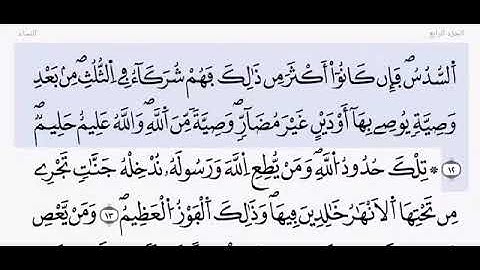 الجزء الرابع
النساء
اَ۬لسُّدُسُۖ فَإِن كَانُوٓاْ أَكْثَرَ مِن ذَٰلِكَ فَهُمْ شُرَكَآءُ فِے اِ۬لثُّلُثِۖ مِنۢ بَعْدِ
وَصِيَّةٖ يُوصِے بِهَآ أَوْ دَيْنٍ غَيْرَ مُضَآرّٖۖ وَصِيَّةٗ مِّنَ اَ۬للَّهِۖ وَاللَّهُ عَلِيمٌ حَلِيمٞۖ
١٢ * تِلْكَ حُدُودُ اُ۬للَّهِۖ وَمَنْ يُّطِعِ اِ۬للَّهَ وَرَسُولَهُۥ نُدْخِلْهُ جَنَّٰتٖ تَجْرِے
مِن تَحْتِهَا اَ۬لَانْهَٰرُ خَٰلِدِينَ فِيهَاۖ وَذَٰلِكَ اَ۬لْفَوْزُ اُ۬لْعَظِيمُۖ ١٣ وَمَنْ يَّعْصِ